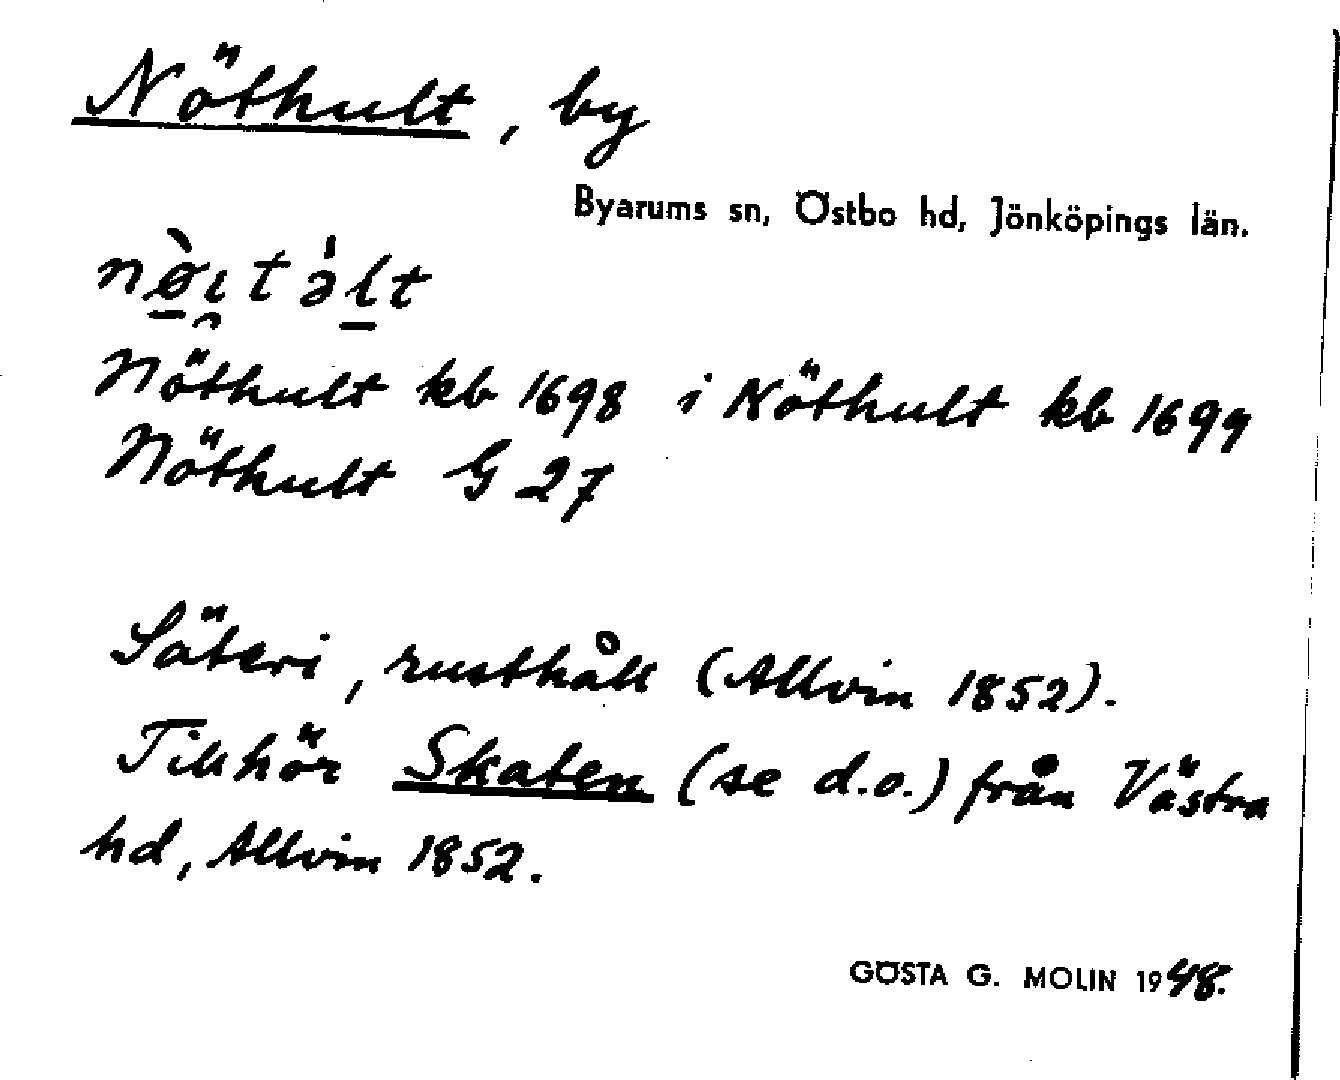 Nöthult, by
Byarums sn, Östbo hd, Jönköpings län.
nø̀ıtəlt
Nöthult kb 1698 i Nöthult kb 1699
Nöthult G 27
Säteri, rusthåll (Allvin 1852).
Tillhör Skaten (se d.o.) från Västra
hd, Allvin 1852.
GÖSTA G. MOLIN 1948.